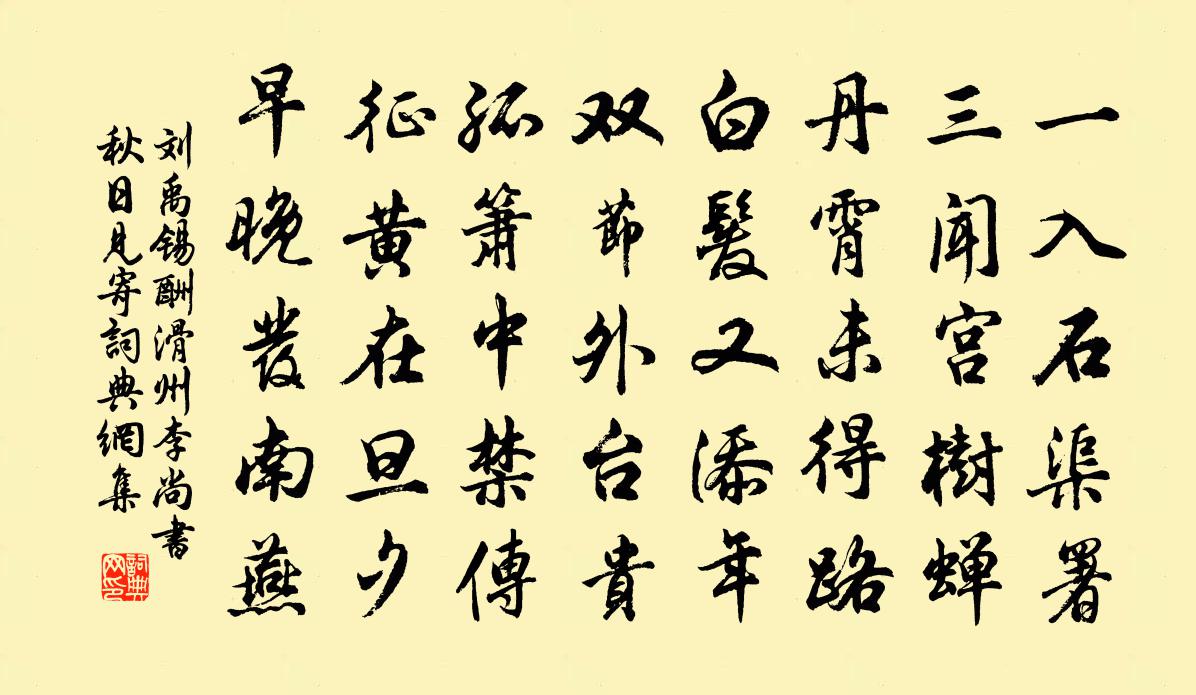 一入石渠署
三闻宫樹蝉
丹霄未得路
白髮又添年
双節外台貴
孤簫中禁傳
征黄在旦夕
早晚發南燕
刘禹锡酬滑州李尚書
秋日見寄詞典網集
詞典网印